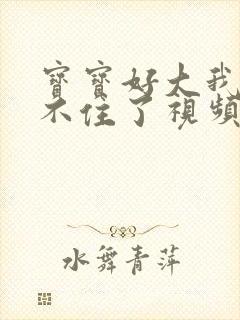 寶寶好大我
不住了視頻
水舞青萍